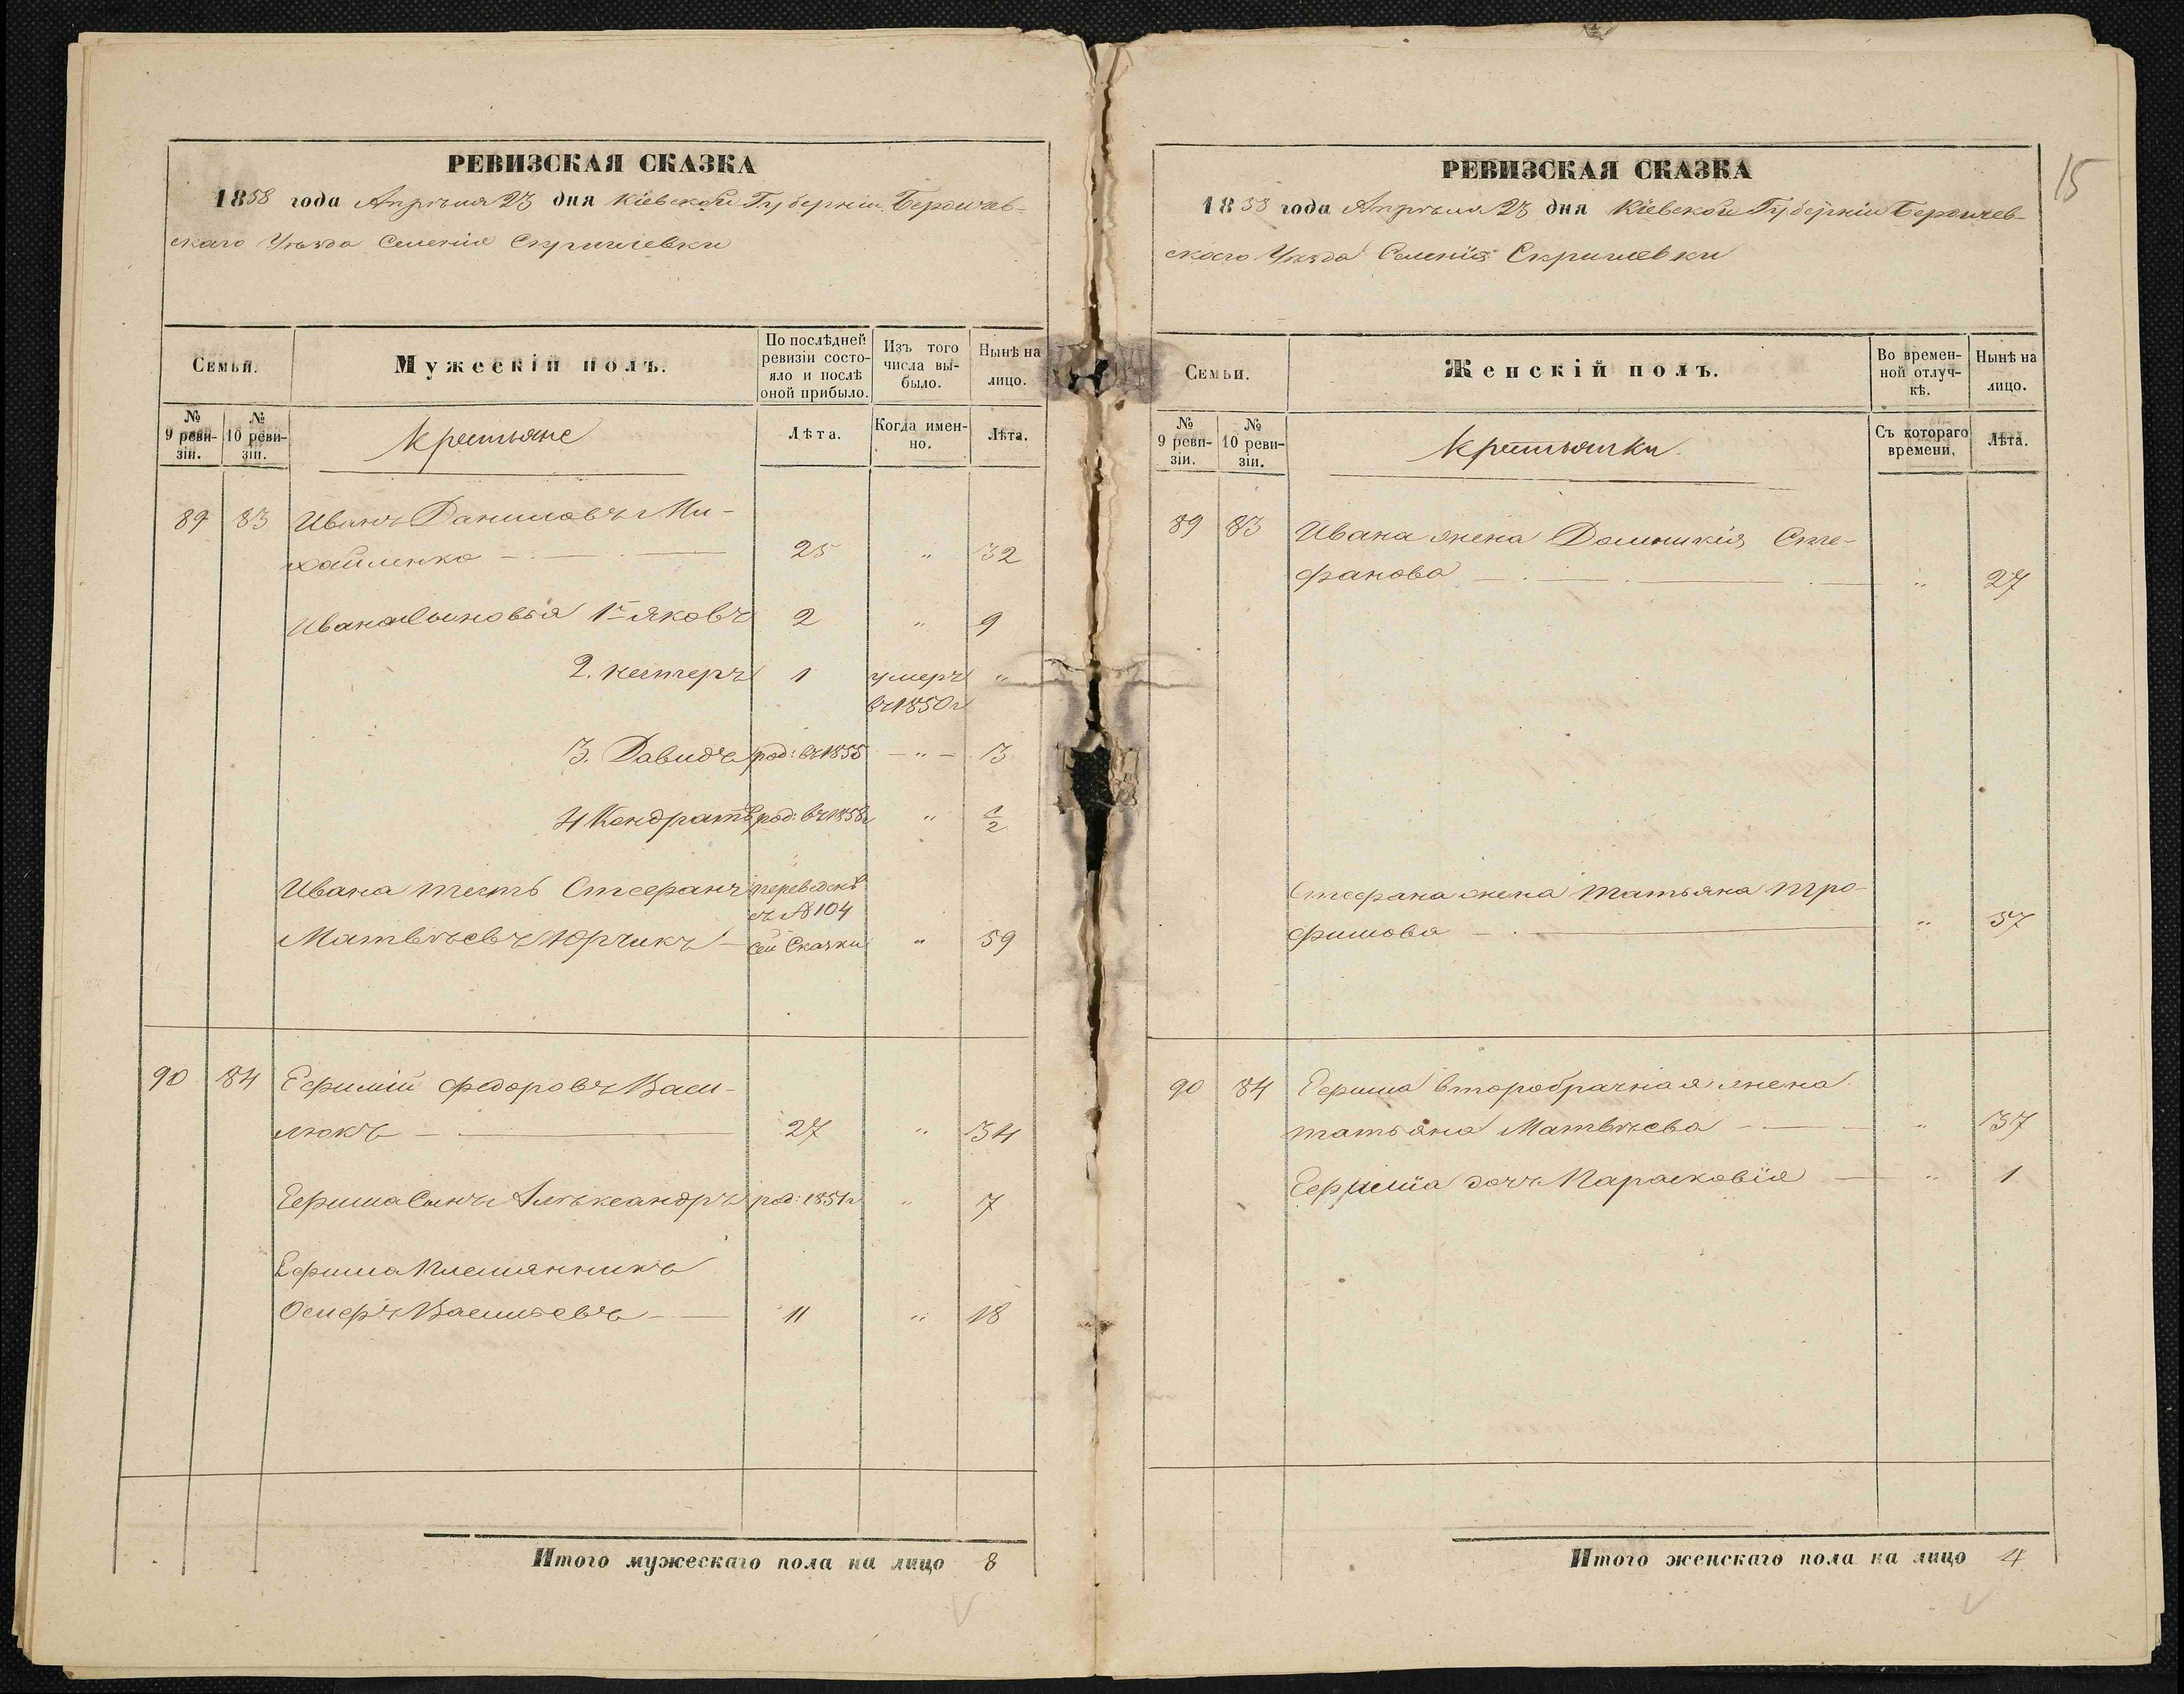 РЕВИЗСКАЯ СКАЗКА
1858 года Апрѣля 23 дня Кіевской Губерніи Бердичев-
скаго Уѣзда Селенія Скригилевки
Семьи.
Мужескій полъ.
По послѣдней ревизіи состояло и послѣ оной прибыло.
Изъ того числа выбыло.
Нынѣ на лицо.
№ 9 ревизіи.
№ 10 ревизіи.
Крестьяне
Лѣта.
Когда именно.
Лѣта.
89 83 Иванъ Даниловъ Ми-
хайленко 25 " 32
Ивана Сыновья 1й Яковъ 2 " 9
2. Нестеръ 1 умеръ "
въ 1850 г
3. Давидъ род: въ 1855 - " - 3
4 Кондратъ род: въ 1858 г " 1/2
Ивана тесть Стефанъ переведенъ
съ № 104
Матвѣевъ Юрчикъ сей Сказки " 59
90 84 Ефимій Федоровъ Васи-
люкъ 27 " 34
Ефима Сынъ Алѣксандръ род: 1851 г " 7
Ефима Племянникъ
Осифъ Васильевъ 11 " 18
Итого мужескаго пола на лицо 8
15
РЕВИЗСКАЯ СКАЗКА
1858 года Апрѣля 23 дня Кіевской Губерніи Бердичев-
скаго Уѣзда Селенія Скригилевки
Семьи.
Женскій полъ.
Во временной отлучкѣ.
Нынѣ на лицо.
№ 9 ревизіи.
№ 10 ревизіи.
Крестьянки
Съ котораго времени.
Лѣта.
89 83 Ивана жена Доминикія Сте-
фанова " 27
Стефана жена Татьяна Тро-
фимова " 57
90 84 Ефима второбрачная жена
Татьяна Матвѣева " 37
Ефимія дочь Парасковія " 1
Итого женскаго пола на лицо 4